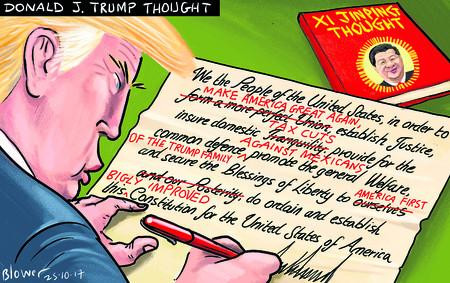 DONALD J. TRUMP THOUGHT
XI JINPING
THOUGHT
We the People of the United States, in order to
MAKE AMERICA GREAT AGAIN
form a more perfect Union, establish Justice,
TAX CUTS
insure domestic Tranquility, provide for the
AGAINST MEXICANS
common defence promote the general Welfare,
OF THE TRUMP FAMILY
and secure the Blessings of Liberty to ourselves
AMERICA FIRST
BIGLY
and our Posterity, do ordain and establish
IMPROVED
this Constitution for the United States of America
Blower 25-10-17